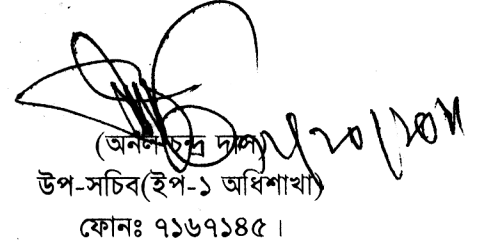 (অনল চন্দ্র দাস)
উপ-সচিব(ইপ-১ অধিশাখা)
ফোনঃ ৭১৬৭১৪৫ ।